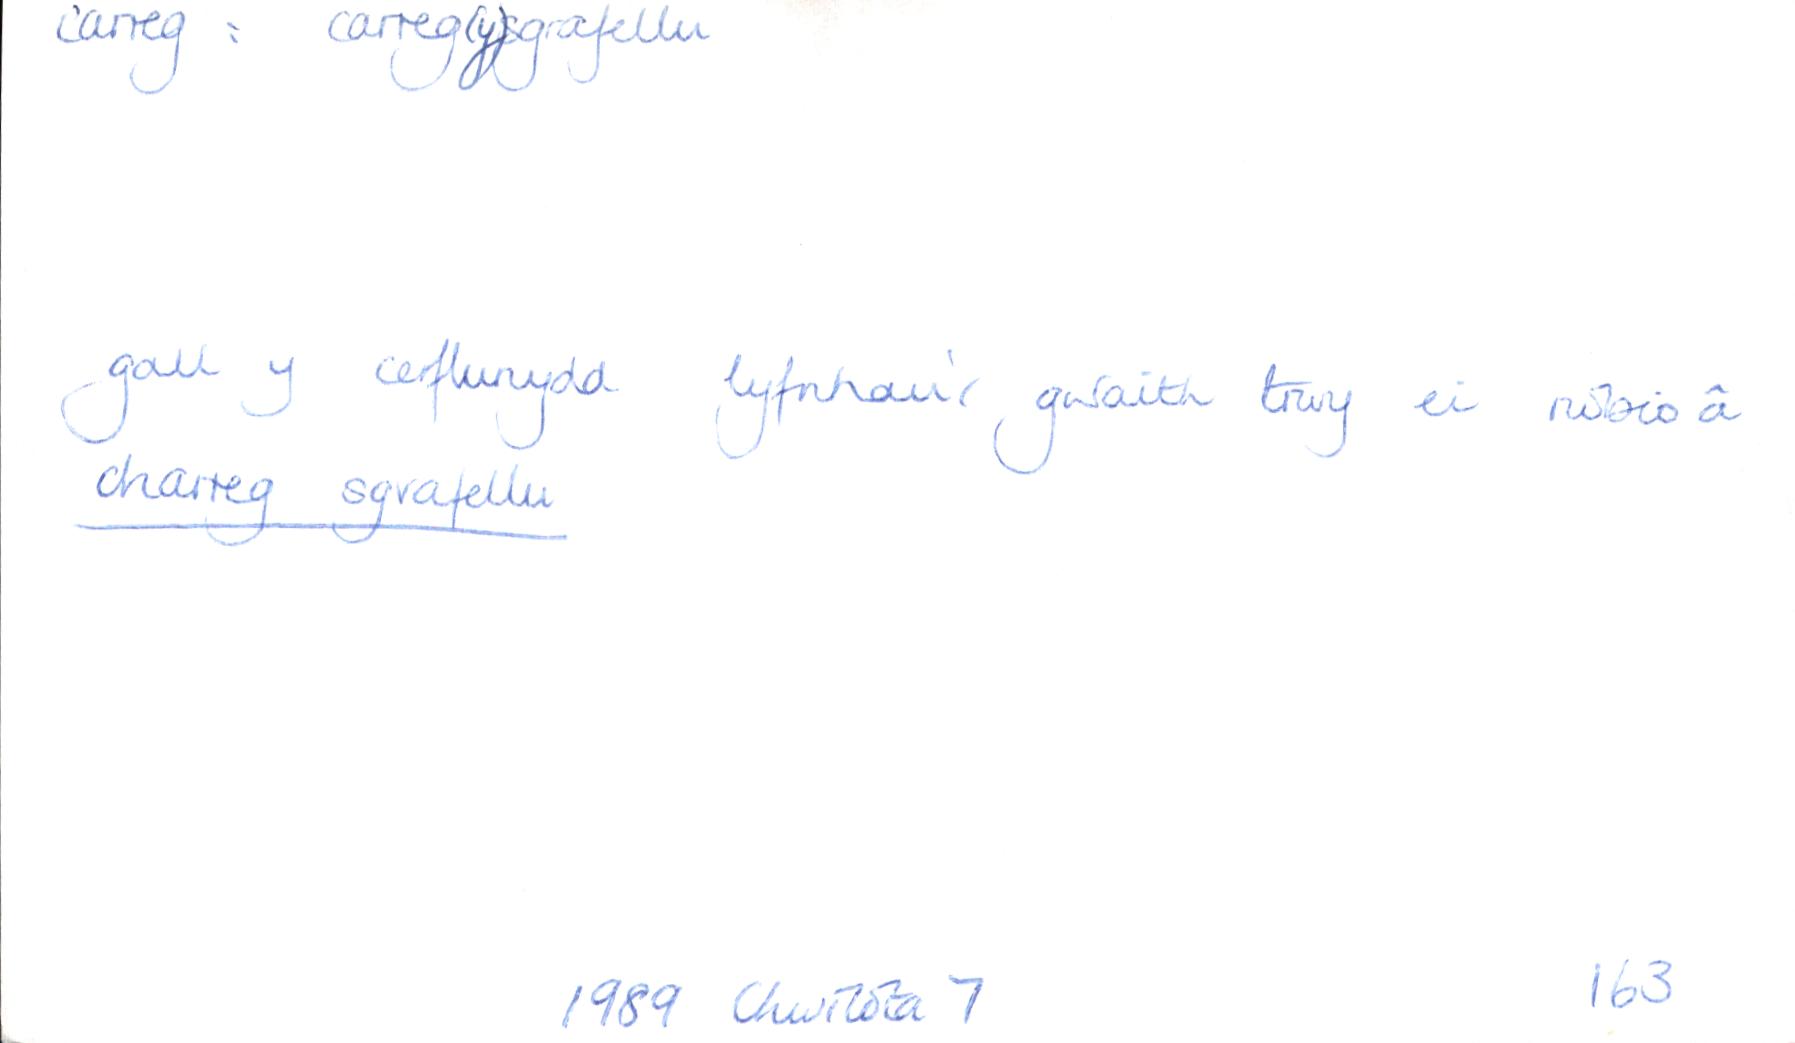 carreg : carreg (y)sgrafellu
gall y cerflunydd lyfnhau'r gwaith trwy ei rwbio â
charreg sgrafellu
1989 Chwilota 7 163